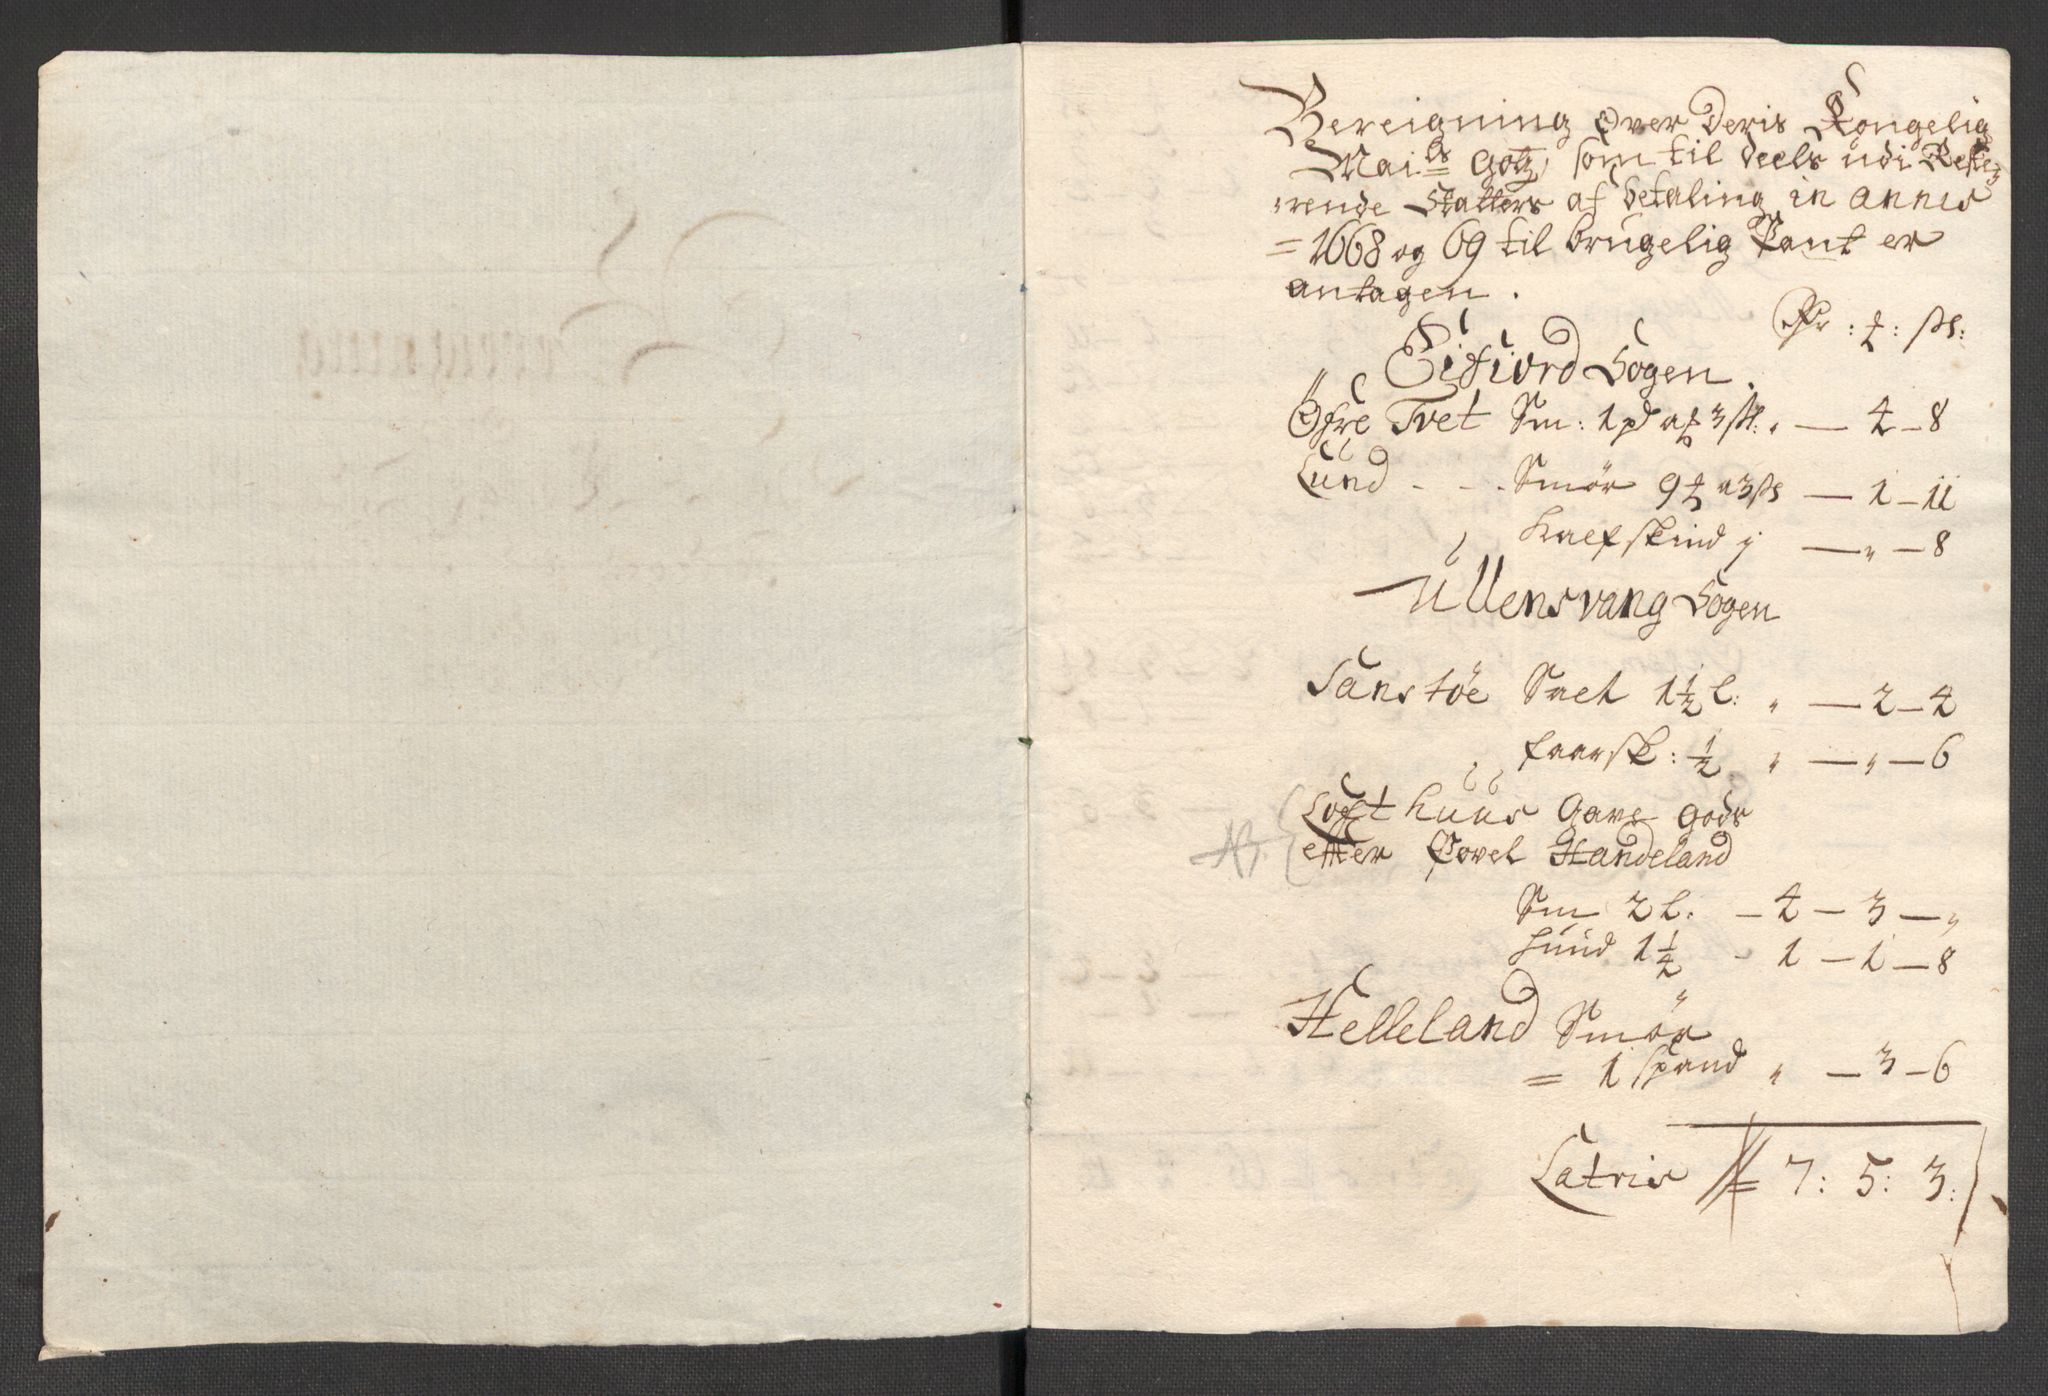 Bereigning over Deris Kongelig
Mai.ts Gotz, som til deels udi Reste,
rende Skatters af betaling in annis
= 1668 og 69 til brugelig Pant er
antagen.
Eifiord Sogen.
Øfre Tvet Sm: 1 pd a 3 ß: , — 4 — 8
Lund - - . Smör 9 a 3 ß — 1 — 11
Kalfskind j — „ — 8
Ullensvang Sogen
Sanstöe Salt 1½ l: „ — 2 — 4
faarsk: ½ „ — „ — 6
Lofthuus Gave gods
NB.
efter Povel Handeland
Sm 2 l. — 4 — 3 — „
huud 1¼ - 1 — 1 — 8
Helleland Smör
= 1 Spand „ — 3 — 6
Latris = 7: 5: 3: